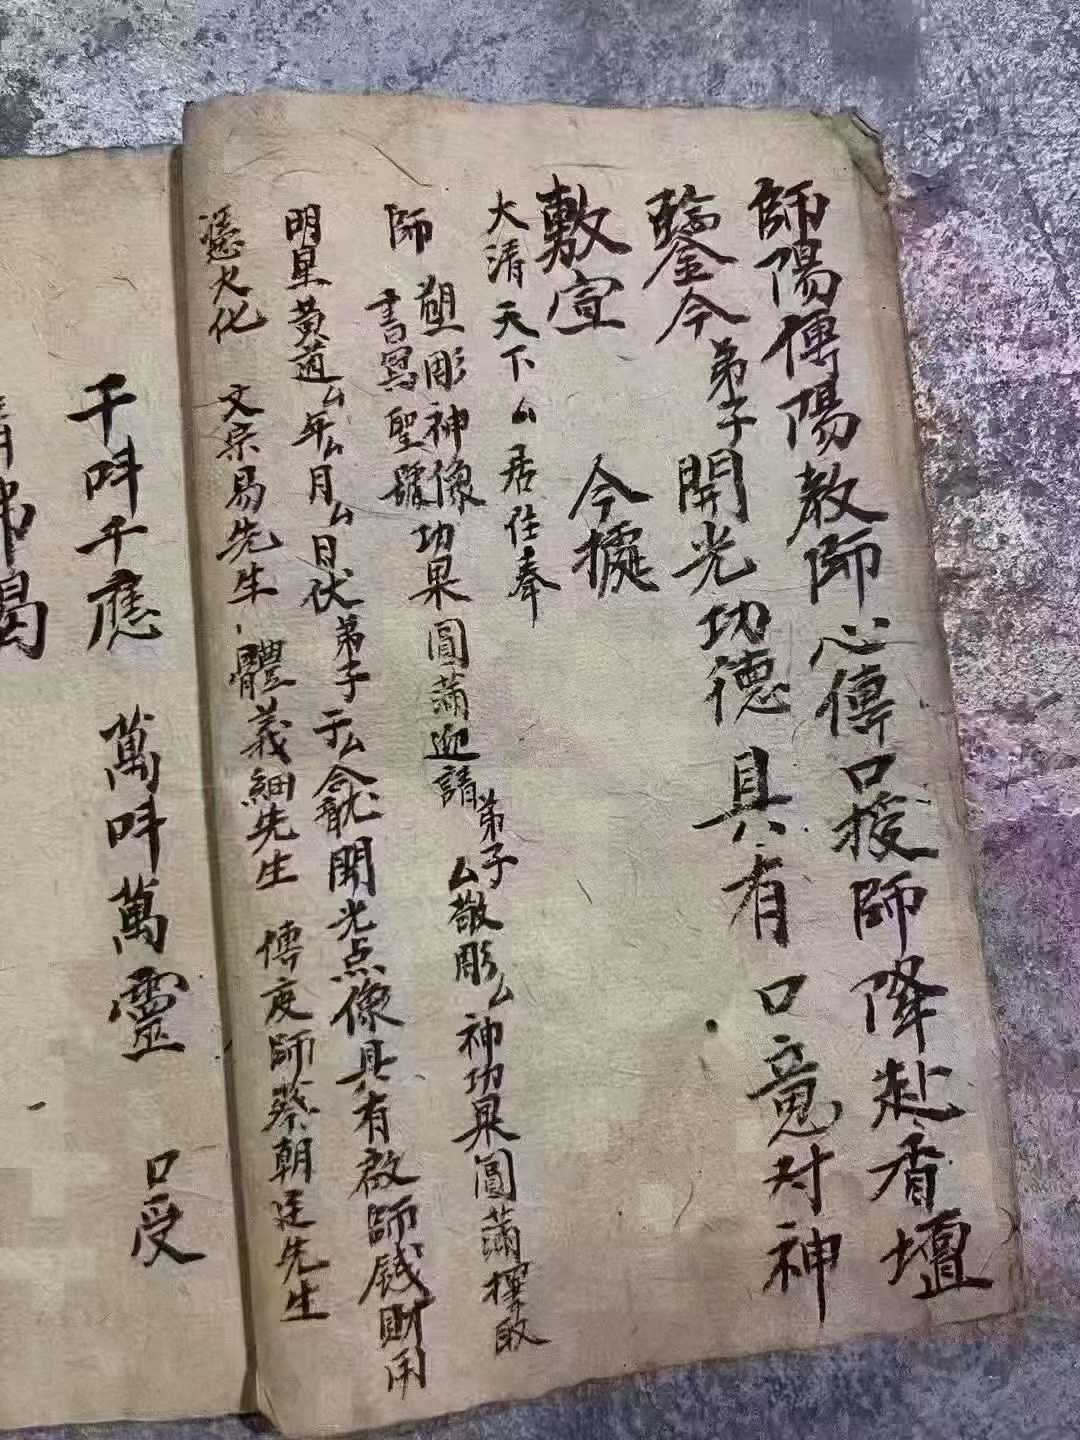 師陽傳陽教師心傳口授師降赴香壇
鑒今弟子開光功德具有口意對神
敷宣 今據
大清天下厶居住奉
師 塑彫神像 書寫聖號 功果圓滿迎請弟子厶敬彫厶神功果圓滿擇取
明星黃道厶年厶月厶日伏弟子于厶 開光点像具有啟師錢財用
憑火化 文宗易先生 體義細先生 傳度師蔡朝廷先生
千呌千應 萬呌萬靈 口受